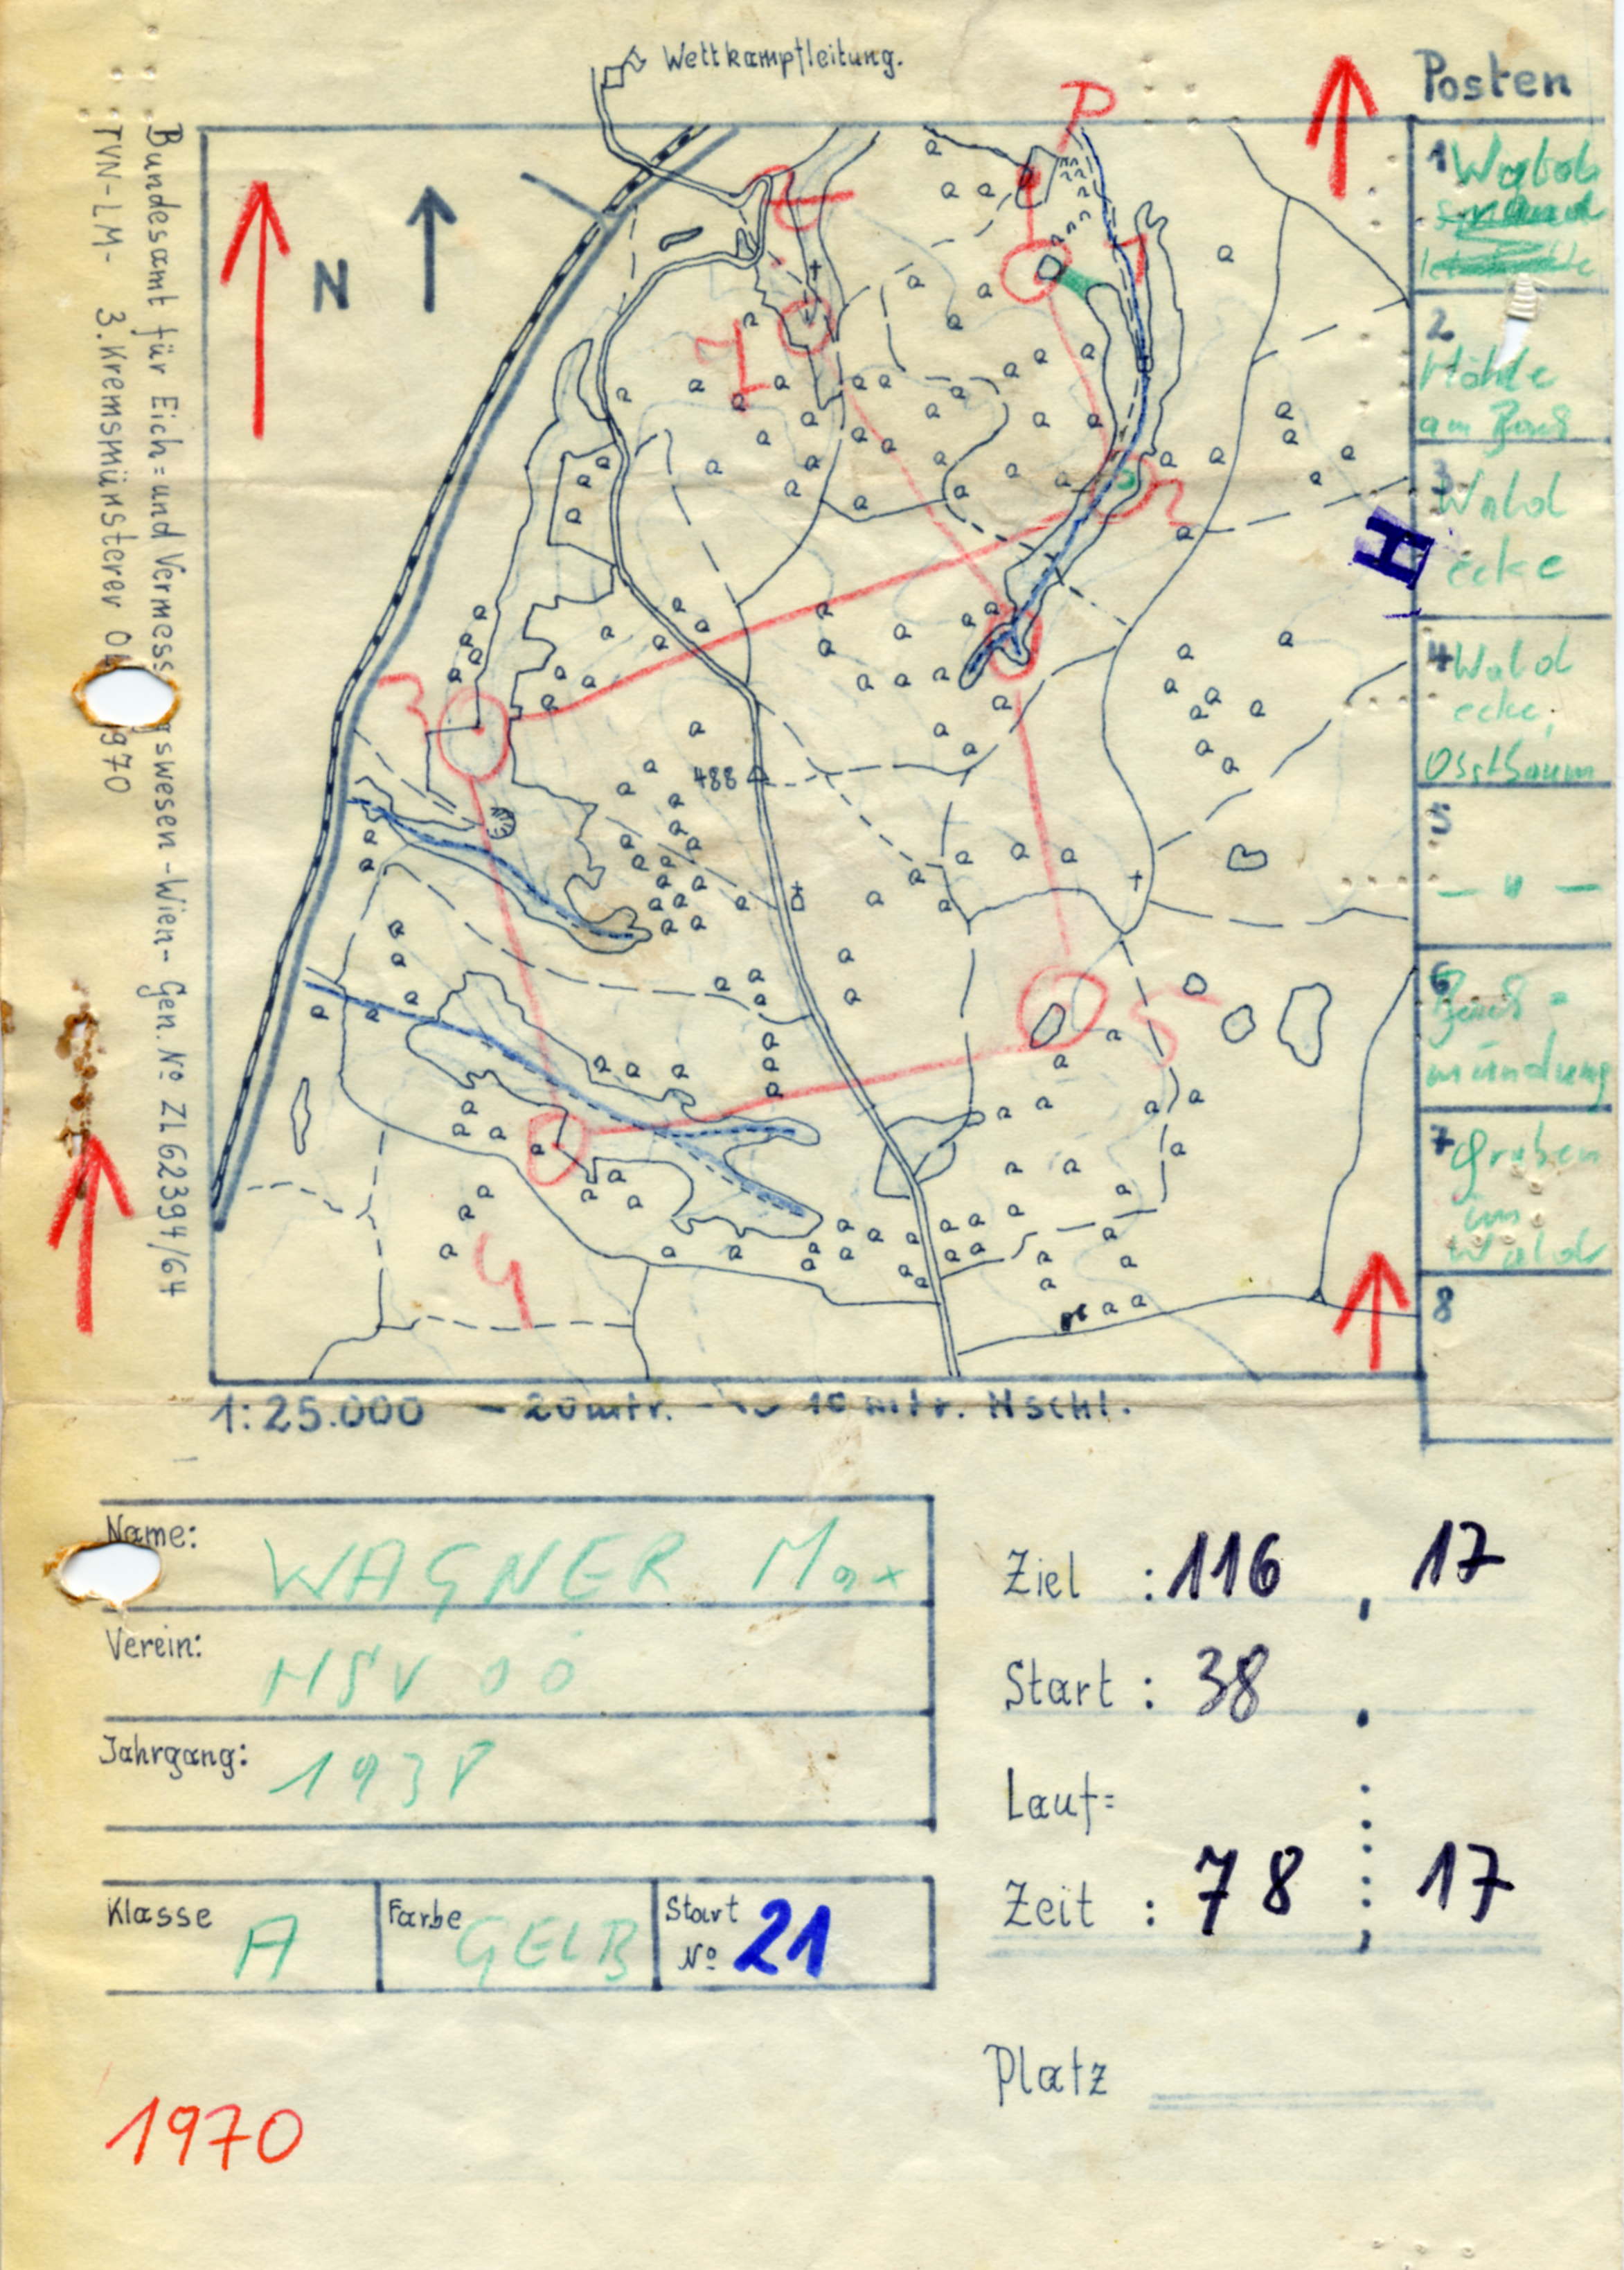 Wettkampfleitung.
Posten
Bundesamt für Eich= und Vermess gswesen - Wien - Gen. No ZL 62394/64
TVN-LM- 3. Kremsmünsterer 970
N
P
1
2
3
4
5
7
488
1
2
Höhle
am
3 Wald
ecke
4 Wald
ecke,
5
- " -
6
mündung
7 Graben
im
Wald
8
H
1:25.000 - 20 mtr. 10 mtr. Hschl.
Name: WAGNER Max
Verein: HSV OÖ
Jahrgang: 1938
Klasse A
Farbe GELB
Start No 21
Ziel : 116 , 17
Start : 38
Lauf=
Zeit : 78 : 17
Platz
1970